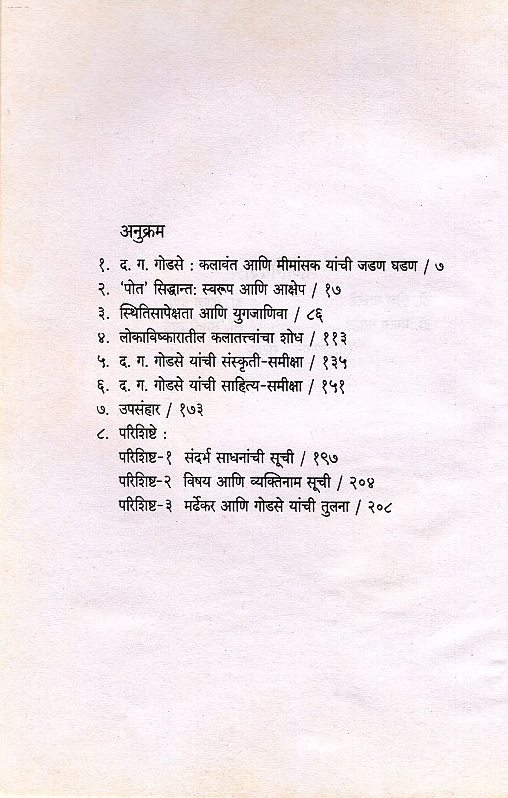 अनुक्रम
१. द. ग. गोडसे : कलावंत आणि मीमांसक यांची जडण घडण / ७
२. ‘पोत’ सिद्धान्त: स्वरूप आणि आक्षेप / १७
३. स्थितिसापेक्षता आणि युगजाणिवा / ८६
४. लोकाविष्कारातील कलातत्त्वांचा शोध / ११३
५. द. ग. गोडसे यांची संस्कृती-समीक्षा / १३५
६. द. ग. गोडसे यांची साहित्य-समीक्षा / १५१
७. उपसंहार / १७३
८. परिशिष्टे :
परिशिष्ट-१ संदर्भ साधनांची सूची / १९७
परिशिष्ट-२ विषय आणि व्यक्तिनाम सूची / २०४
परिशिष्ट-३ मर्ढेकर आणि गोडसे यांची तुलना / २०८